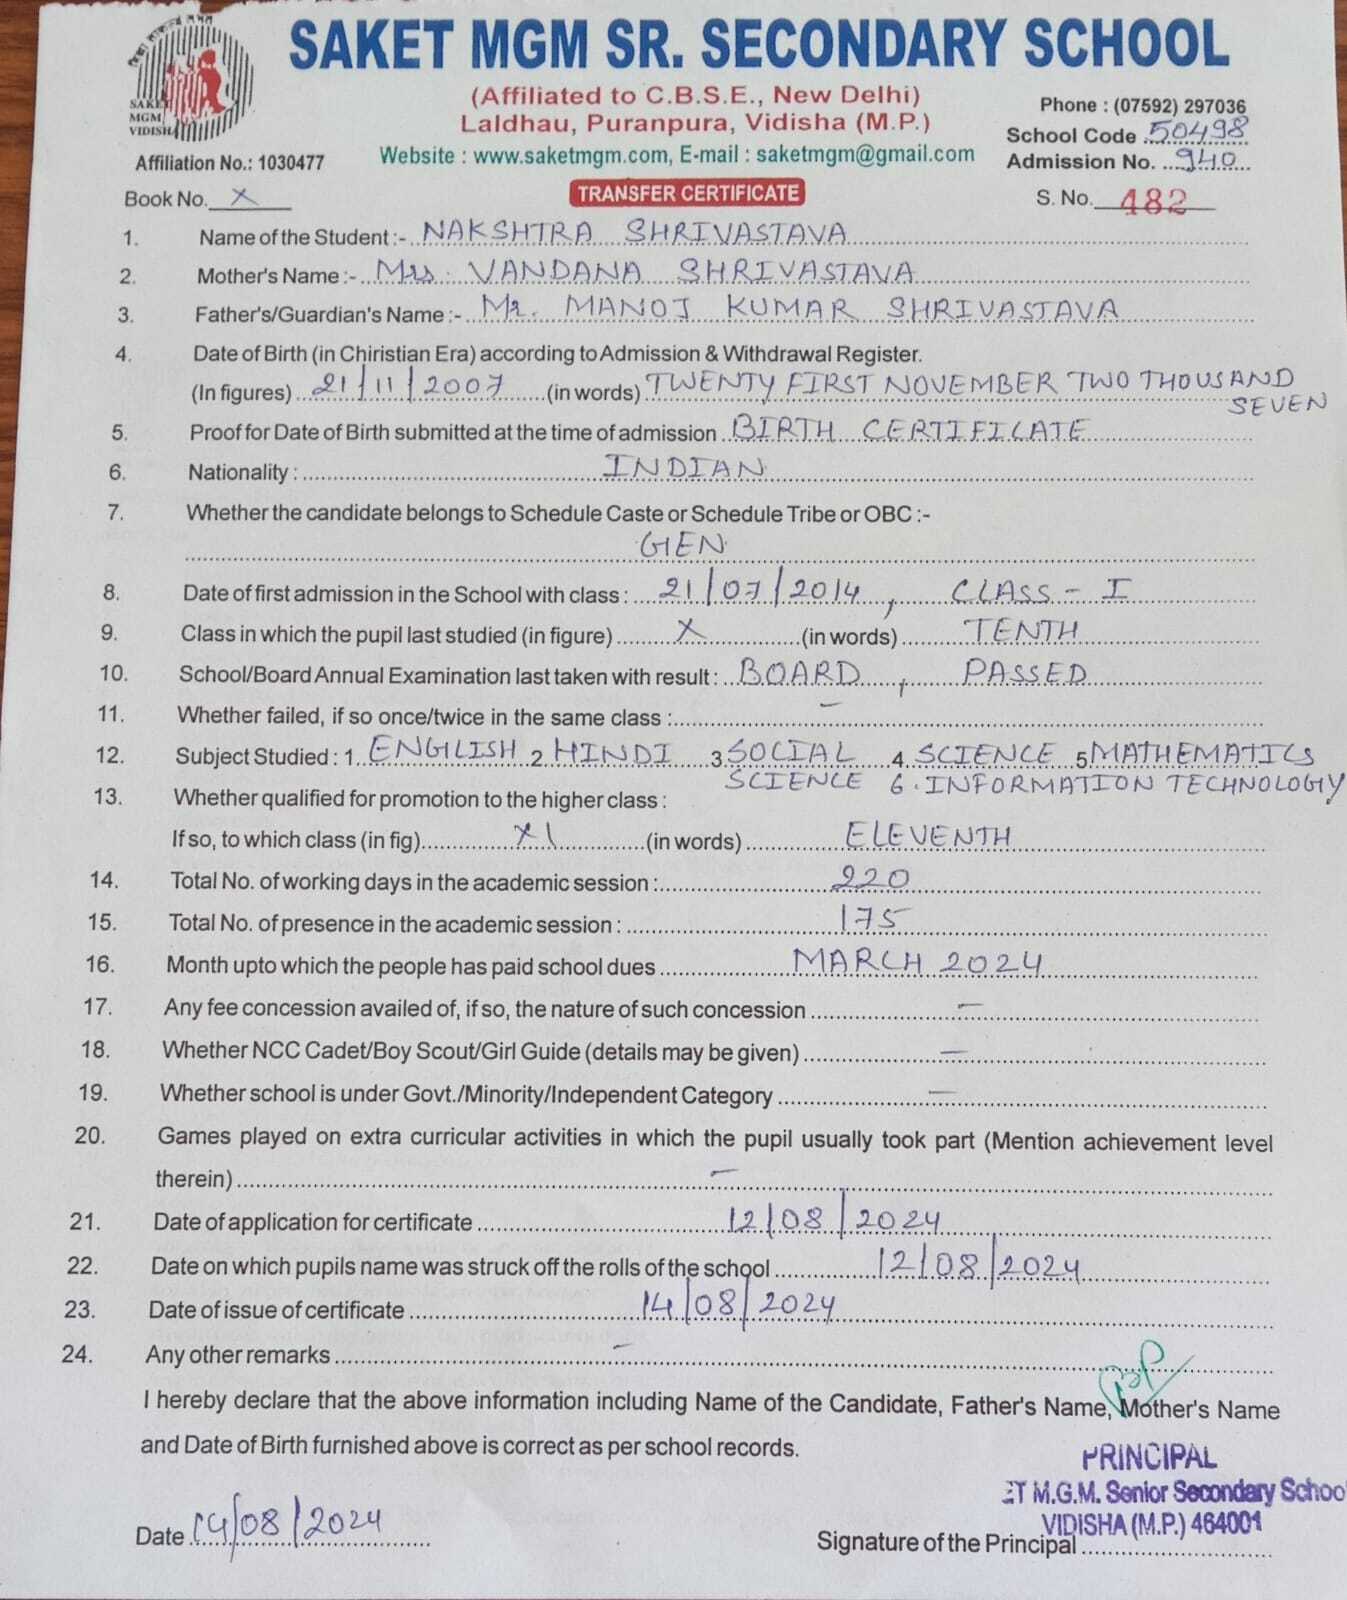 SAKET MGM SR. SECONDARY SCHOOL
SAKET
MGM
VIDISHA
(Affiliated to C.B.S.E., New Delhi)
Laldhau, Puranpura, Vidisha (M.P.)
Phone : (07592) 297036
School Code 50498
Affiliation No.: 1030477
Website : www.saketmgm.com, E-mail : saketmgm@gmail.com
Admission No. 940
Book No. X
TRANSFER CERTIFICATE
S. No. 482
1. Name of the Student :- NAKSHTRA SHRIVASTAVA
2. Mother's Name :- Mrs. VANDANA SHRIVASTAVA
3. Father's/Guardian's Name :- Mr. MANOJ KUMAR SHRIVASTAVA
4. Date of Birth (in Chiristian Era) according to Admission & Withdrawal Register.
(In figures) 21/11/2007 (in words) TWENTY FIRST NOVEMBER TWO THOUSAND
SEVEN
5. Proof for Date of Birth submitted at the time of admission BIRTH CERTIFICATE
6. Nationality : INDIAN
7. Whether the candidate belongs to Schedule Caste or Schedule Tribe or OBC :-
GEN
8. Date of first admission in the School with class : 21/07/2014, CLASS - I
9. Class in which the pupil last studied (in figure) X (in words) TENTH
10. School/Board Annual Examination last taken with result : BOARD, PASSED
11. Whether failed, if so once/twice in the same class : -
12. Subject Studied : 1. ENGLISH 2 HINDI 3 SOCIAL 4. SCIENCE 5 MATHEMATICS
SCIENCE 6. INFORMATION TECHNOLOGY
13. Whether qualified for promotion to the higher class :
If so, to which class (in fig) XI (in words) ELEVENTH
14. Total No. of working days in the academic session : 220
15. Total No. of presence in the academic session : 175
16. Month upto which the people has paid school dues MARCH 2024
17. Any fee concession availed of, if so, the nature of such concession -
18. Whether NCC Cadet/Boy Scout/Girl Guide (details may be given) -
19. Whether school is under Govt./Minority/Independent Category -
20. Games played on extra curricular activities in which the pupil usually took part (Mention achievement level
therein) -
21. Date of application for certificate 12/08/2024
22. Date on which pupils name was struck off the rolls of the school 12/08/2024
23. Date of issue of certificate 14/08/2024
24. Any other remarks -
I hereby declare that the above information including Name of the Candidate, Father's Name, Mother's Name
and Date of Birth furnished above is correct as per school records.
PRINCIPAL
ET M.G.M. Senior Secondary School
VIDISHA (M.P.) 464001
Date 14/08/2024
Signature of the Principal